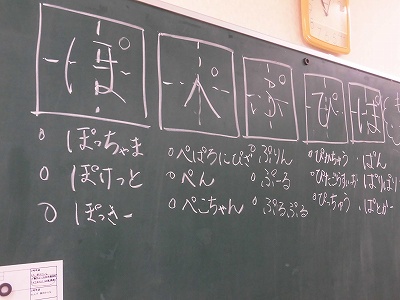 ぽ ぺ ぷ ぴ ぱ
ぽっちゃま ぺぱろにぴざ ぷりん ぴかちゅう ぱん
ぽけっと ぺん ぷーる ぱりぱり
ぽっきー ぺこちゃん ぷるぷる ぴっちゅう ぱとかー